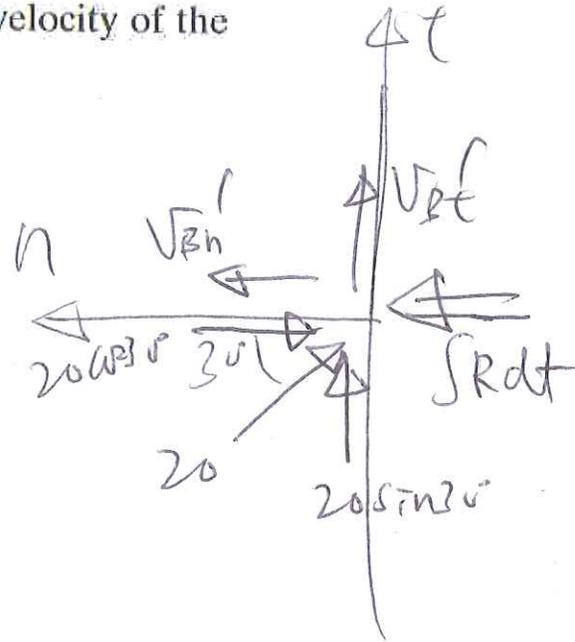 velocity of the
t
V_Bt'
V_Bn'
n
20cos30
30
∫Rdt
20
20sin30